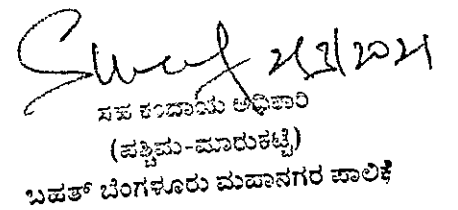 2/3/2021
ಸಹ ಕಂದಾಯ ಅಧಿಕಾರಿ
(ಪಶ್ಚಿಮ-ಮಾರುಕಟ್ಟೆ)
ಬೃಹತ್ ಬೆಂಗಳೂರು ಮಹಾನಗರ ಪಾಲಿಕೆ